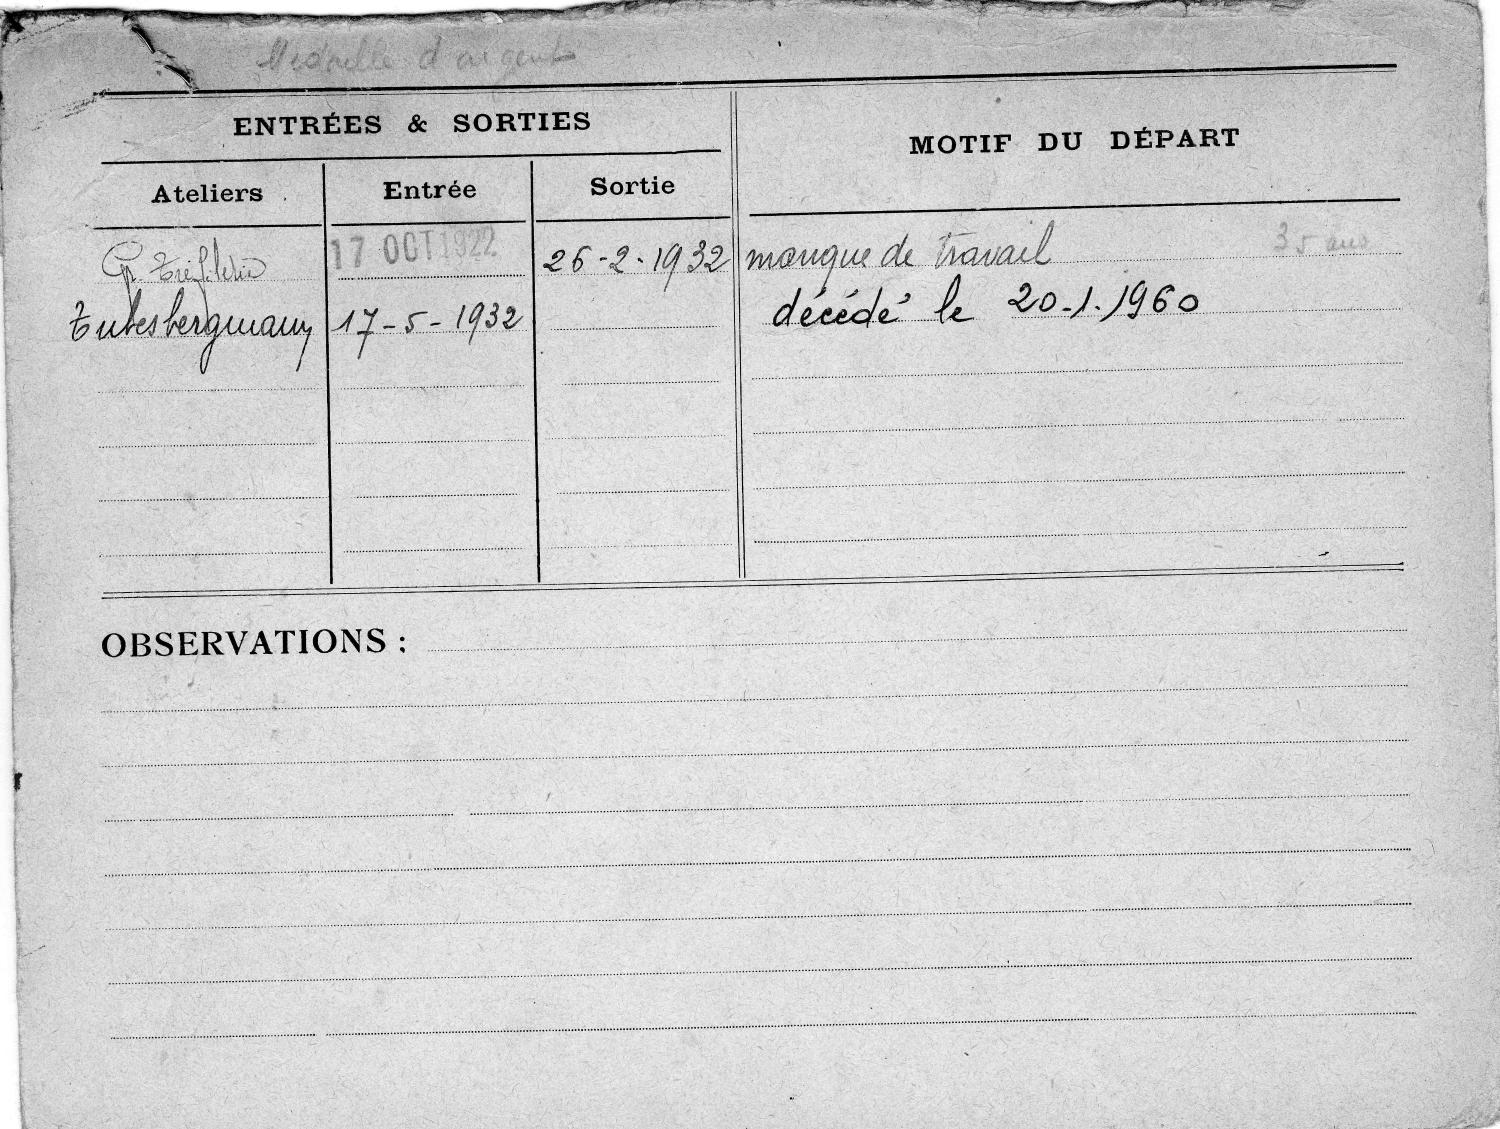 Médaille d'argent
ENTRÉES & SORTIES
MOTIF DU DÉPART
Ateliers
Entrée
Sortie
Gr Tréfilerie 17 OCT 1922 26-2-1932 manque de travail 35 ans
Tubes bergmann 17-5-1932 décédé le 20.1.1960
OBSERVATIONS :